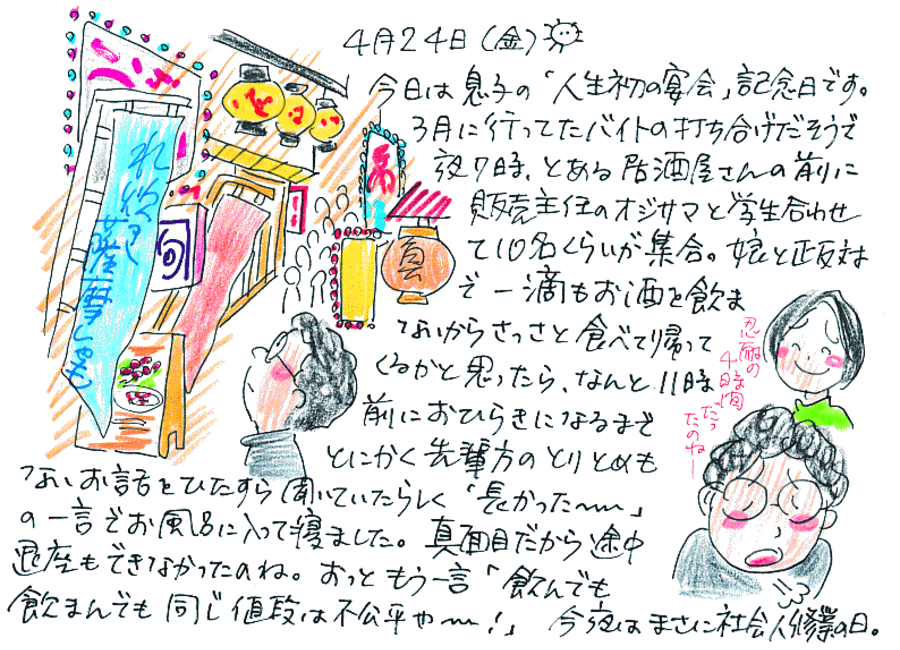 4月24日(金)
今日は息子の「人生初の宴会」記念日です。
3月に行ってたバイトの打ち合げだそうで
夜7時、とある居酒屋さんの前に
販売主任のオジサマと学生合わせ
て10名くらいが集合。娘と正反対
で一滴もお酒を飲ま
ないからさっさと食べて帰って
くるかと思ったら、なんと11時
前におひらきになるまで
とにかく先輩方のとりとめも
ないお話をひたすら聞いていたらしく「長かった〜〜」
の一言でお風呂に入って寝ました。真面目だから途中
退座もできなかったのね。おっともう一言「飲んでも
飲まんでも同じ値段は不公平や〜〜!」 今夜はまさに社会人修業の日。
忍耐の
4時間
だっ
たのねー
旬